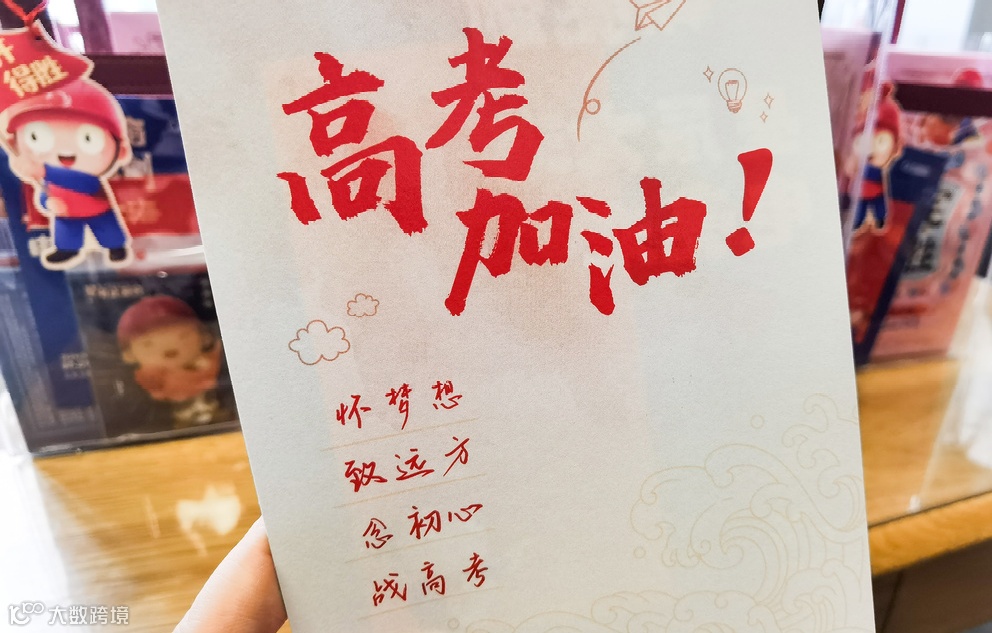 得胜
高考
加油!
怀梦想
致远方
念初心
战高考
大数跨境